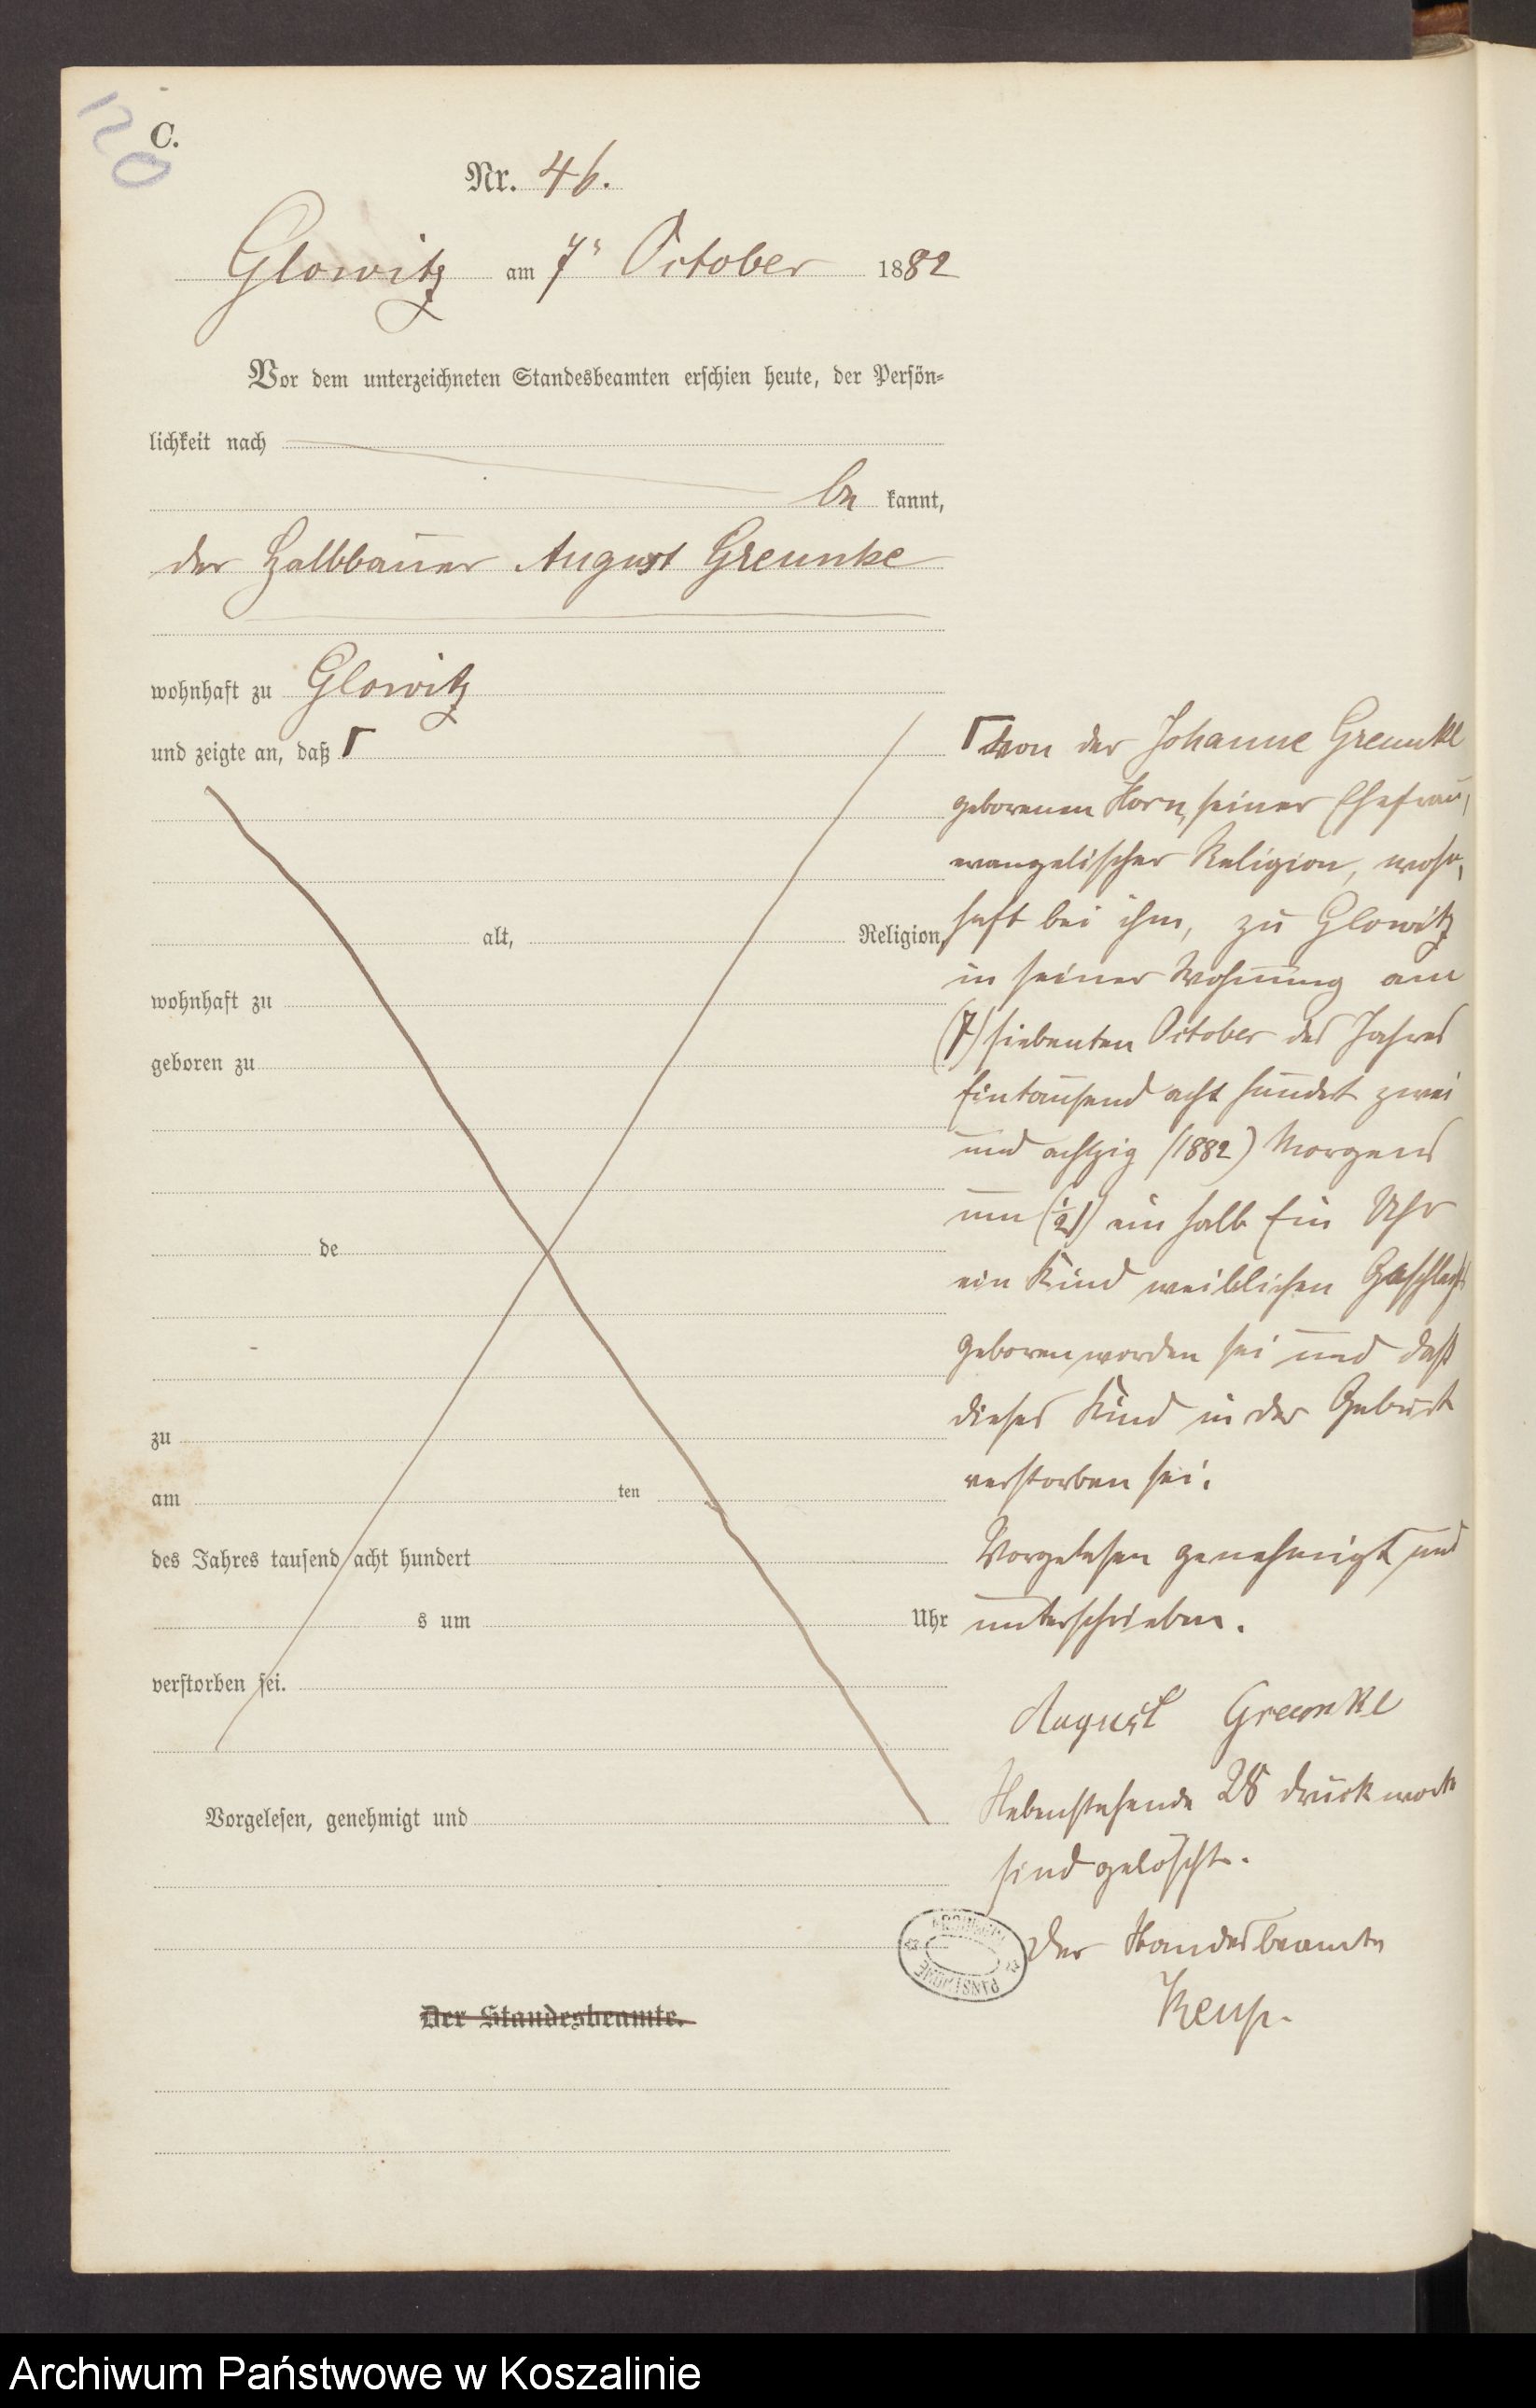 120
C.
Nr. 46.
Glowitz am 7n October 1882
Vor dem unterzeichneten Standesbeamten erschien heute, der Persön=
lichkeit nach
be kannt,
der Halbbauer August Greunke
wohnhaft zu Glowitz
und zeigte an, daß Γ
alt, Religion,
wohnhaft zu
geboren zu
de
zu
am ten
des Jahres tausend acht hundert
s um Uhr
verstorben sei.
Vorgelesen, genehmigt und
Der Standesbeamte.
Γ von der Johanne Greunke
geborenen Horn, seiner Ehefrau,
evangelischer Religion, wohn,
haft bei ihm, zu Glowitz
in seiner Wohnung am
(7) siebenten October des Jahres
Eintausend acht hundert zwei
und achtzig (1882) Morgens
um (½1) ein halb Ein Uhr
ein Kind weiblichen Geschlechts
geboren worden sei und daß
dieses Kind in der Geburt
verstorben sei.
Vorgelesen genehmigt und
unterschrieben.
August Greunke
Nebenstehende 28 Druckworte
sind gelöscht.
Der Standesbeamte
ARCHIWUM PAŃSTWOWE
Archiwum Państwowe w Koszalinie